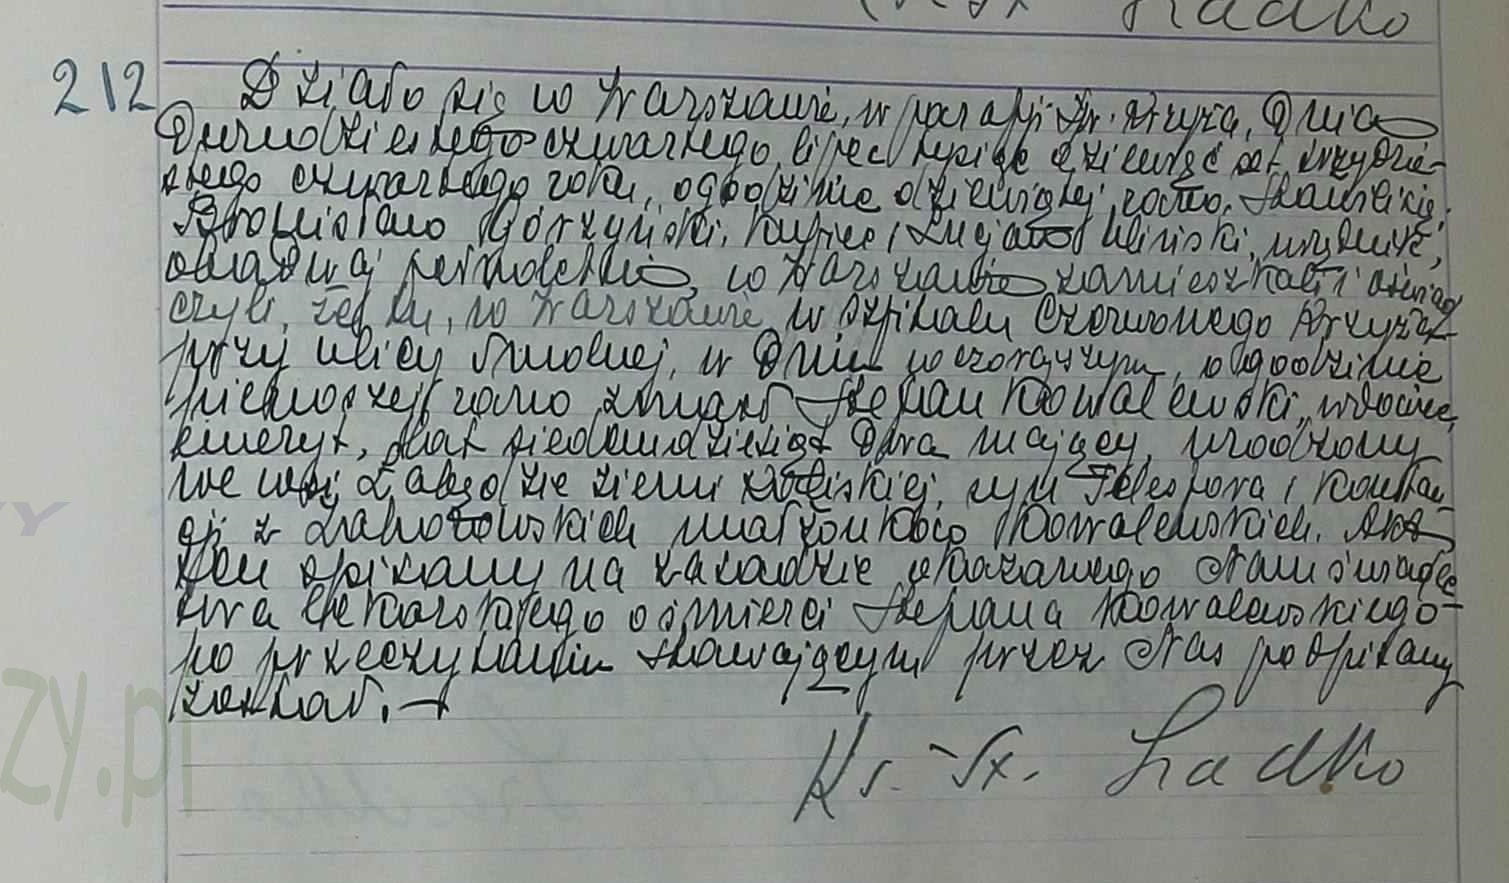 Ks. St. Ładko
212
Działo się w Warszawie, w parafji Św. Krzyża, Dnia
Dwudziestego czwartego lipca tysiąc dziewięć set trzydzie-
stego czwartego roku, o godzinie dziewiątej rano. Stawili się,
Bronisław Górzyński, kupiec, i Lucjan Wiliński, urzędnik,
obaj pełnoletni, w Warszawie zamieszkali i oświad
czyli, że tu, w Warszawie w szpitalu Czerwonego Krzyża
przy ulicy Smolnej, w Dniu wczorajszym, o godzinie
pierwszej rano zmarł Stefan Kowalewski, wdowiec,
emeryt, lat siedemdziesiąt dwa mający, urodzony
we wsi Łabędzie ziemi syn Telesfora i Konstan
cji z małżonków Kowalewskich. Akt
ten spisany na zasadzie okazanego Nam świadec
twa lekarskiego o śmierci Stefana Kowalewskiego
po przeczytaniu stawającym przez Nas podpisany
został.
Ks. St. Ładko
ZY.pl